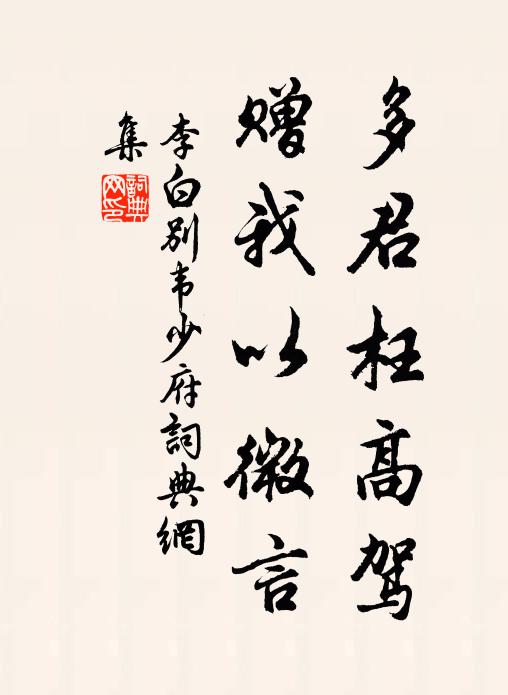 多君枉高驾
赠我以微言
李白别韦少府詞典網
集
詞典
网印